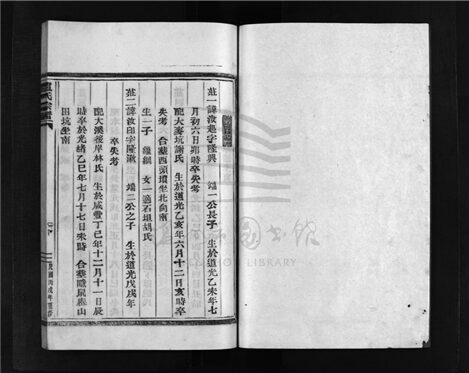 莊一諱汝起字隆興 端一公長子 生於道光乙未年七
月初六日卯時卒失考
配大麥坑謝氏 生於道光乙亥年六月十二日亥時卒
失考 合葬西頭壇坐北向南
生一子 錐鋼 女一適石坦胡氏
莊二諱汝印字隆漱 端二公之子 生於道光戊戌年
卒失考
配大溪後岸林氏 生於咸豐丁巳年十二月十一日辰
時卒於光緒乙巳年七月十七日未時 合葬瞻鼠山
田坑坐南
氏宗譜
民國丙戌年重修
LIBRARY